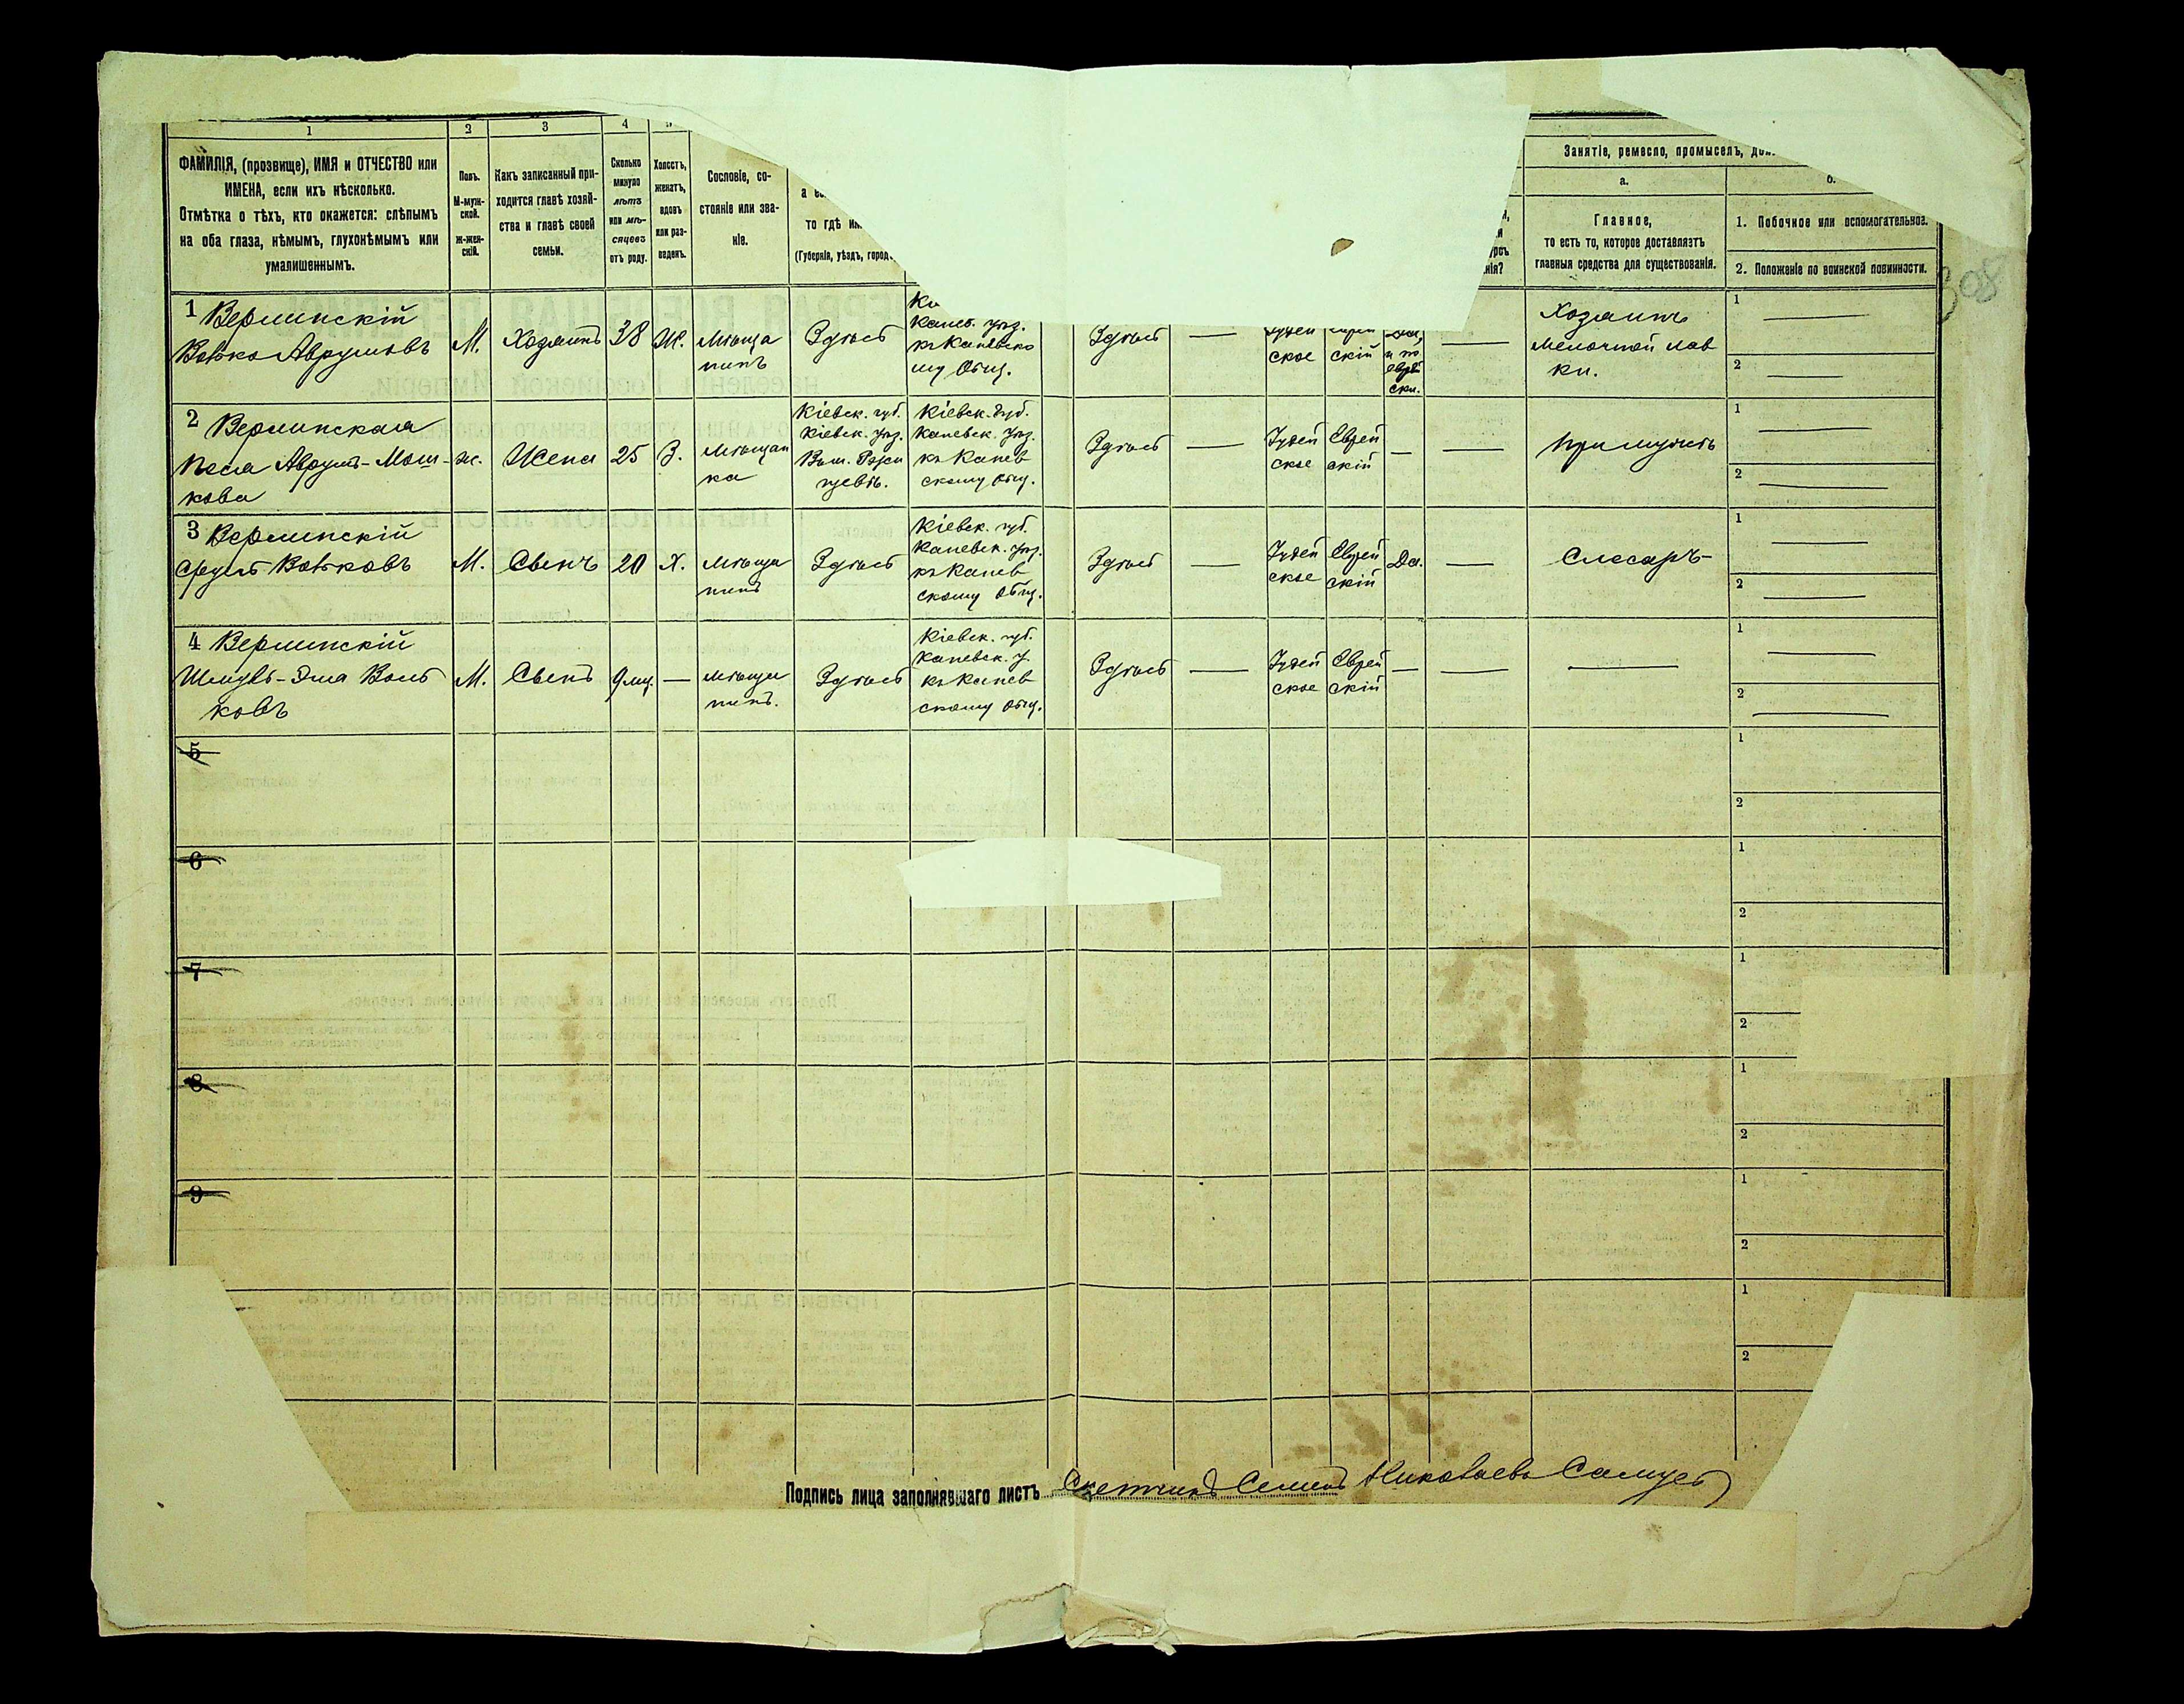 1
2
3
4
ФАМИЛІЯ, (прозвище), ИМЯ и ОТЧЕСТВО или
ИМЕНА, если ихъ нѣсколько.
Отмѣтка о тѣхъ, кто окажется: слѣпымъ
на оба глаза, нѣмымъ, глухонѣмымъ или
умалишеннымъ.
Полъ.
М-муж-
ской.
Ж-жен-
скій.
Какъ записанный при-
ходится главѣ хозяй-
ства и главѣ своей
семьи.
Сколько
минуло
лѣтъ
или мѣ-
сяцевъ
отъ роду.
Холостъ,
женатъ,
вдовъ
или раз-
веденъ.
Сословіе, со-
стояніе или зва-
ніе.
то гдѣ
(Губернія, уѣздъ, город
Занятіе, ремесло, промыселъ,
а.
Главное,
то есть то, которое доставляетъ
главныя средства для существованія.
б.
1. Побочное или вспомогательное.
2. Положеніе по воинской повинности.
308
1 Верлинскій
Волько Аврумовъ
М.
Хозяинъ
38
Ж.
Мѣща
нинъ
Здѣсь
Канев. уѣз.
къ Каневско
му Общ.
Здѣсь
—
Іудей
ское
Еврей
скій
Да,
и по
еврей
ски.
—
Хозяинъ
мелочной лав
ки.
1 —
2 —
2 Верлинская
Песя Аврумъ-Мош-
кова
ж.
Жена
25
З.
Мѣщан
ка
Кіевск. губ.
Кіевск. уѣз.
Кіевск. губ.
Каневск. уѣз.
къ Канев
скому общ.
Здѣсь
—
Іудей
ское
Еврей
скій
—
—
При мужѣ
1 —
2 —
3 Верлинскій
Сруль Вольковъ
М.
Сынъ
20
Х.
Мѣща
нинъ
Здѣсь
Кіевск. губ.
Каневск. уѣз.
къ Канев
скому Общ.
Здѣсь
—
Іудей
ское
Еврей
скій
Да.
—
Слесарь
1 —
2 —
4 Верлинскій
Вольковъ
М.
Сынъ
9 мц.
—
Мѣща
нинъ.
Здѣсь
Кіевск. губ.
Каневск. у.
къ Канев
скому общ.
Здѣсь
—
Іудей
ское
Еврей
скій
—
—
—
1 —
2 —
5
1
2
6
1
2
7
1
2
8
1
2
9
1
2
1
2
Подпись лица заполнявшаго листъ Счетчикъ Семенъ Николаевъ